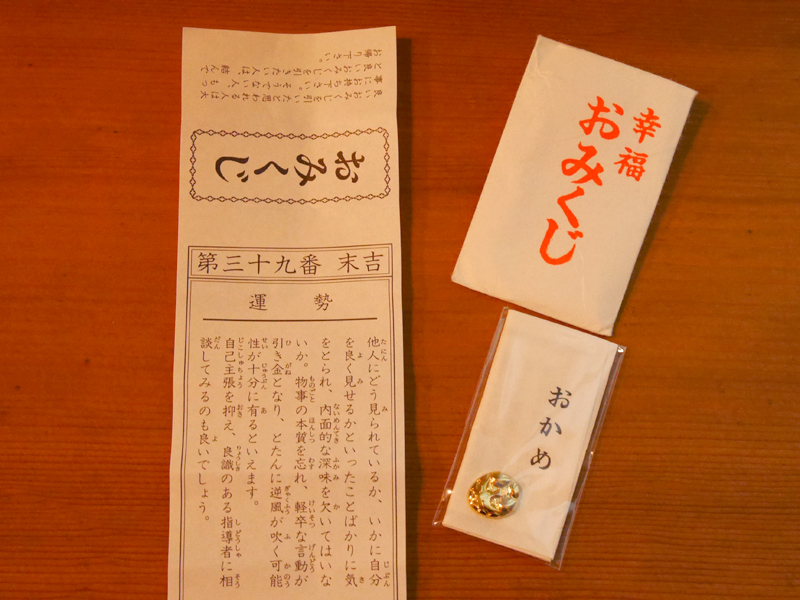 良いおみくじを引いたと思われる人は大
事にお持ち下さい。そうでない人、もっ
と良いおみくじを引きたい人は、結んで
お帰り下さい。
おみくじ
第三十九番 末吉
運勢
他人にどう見られているか、いかに自分
を良く見せるかといったことばかりに気
をとられ、内面的な深味を欠いてはいな
いか。物事の本質を忘れ、軽卒な言動が
引き金となり、とたんに逆風が吹く可能
性が十分に有るといえます。
自己主張を抑え、良識のある指導者に相
談してみるのも良いでしょう。
幸福
おみくじ
おかめ